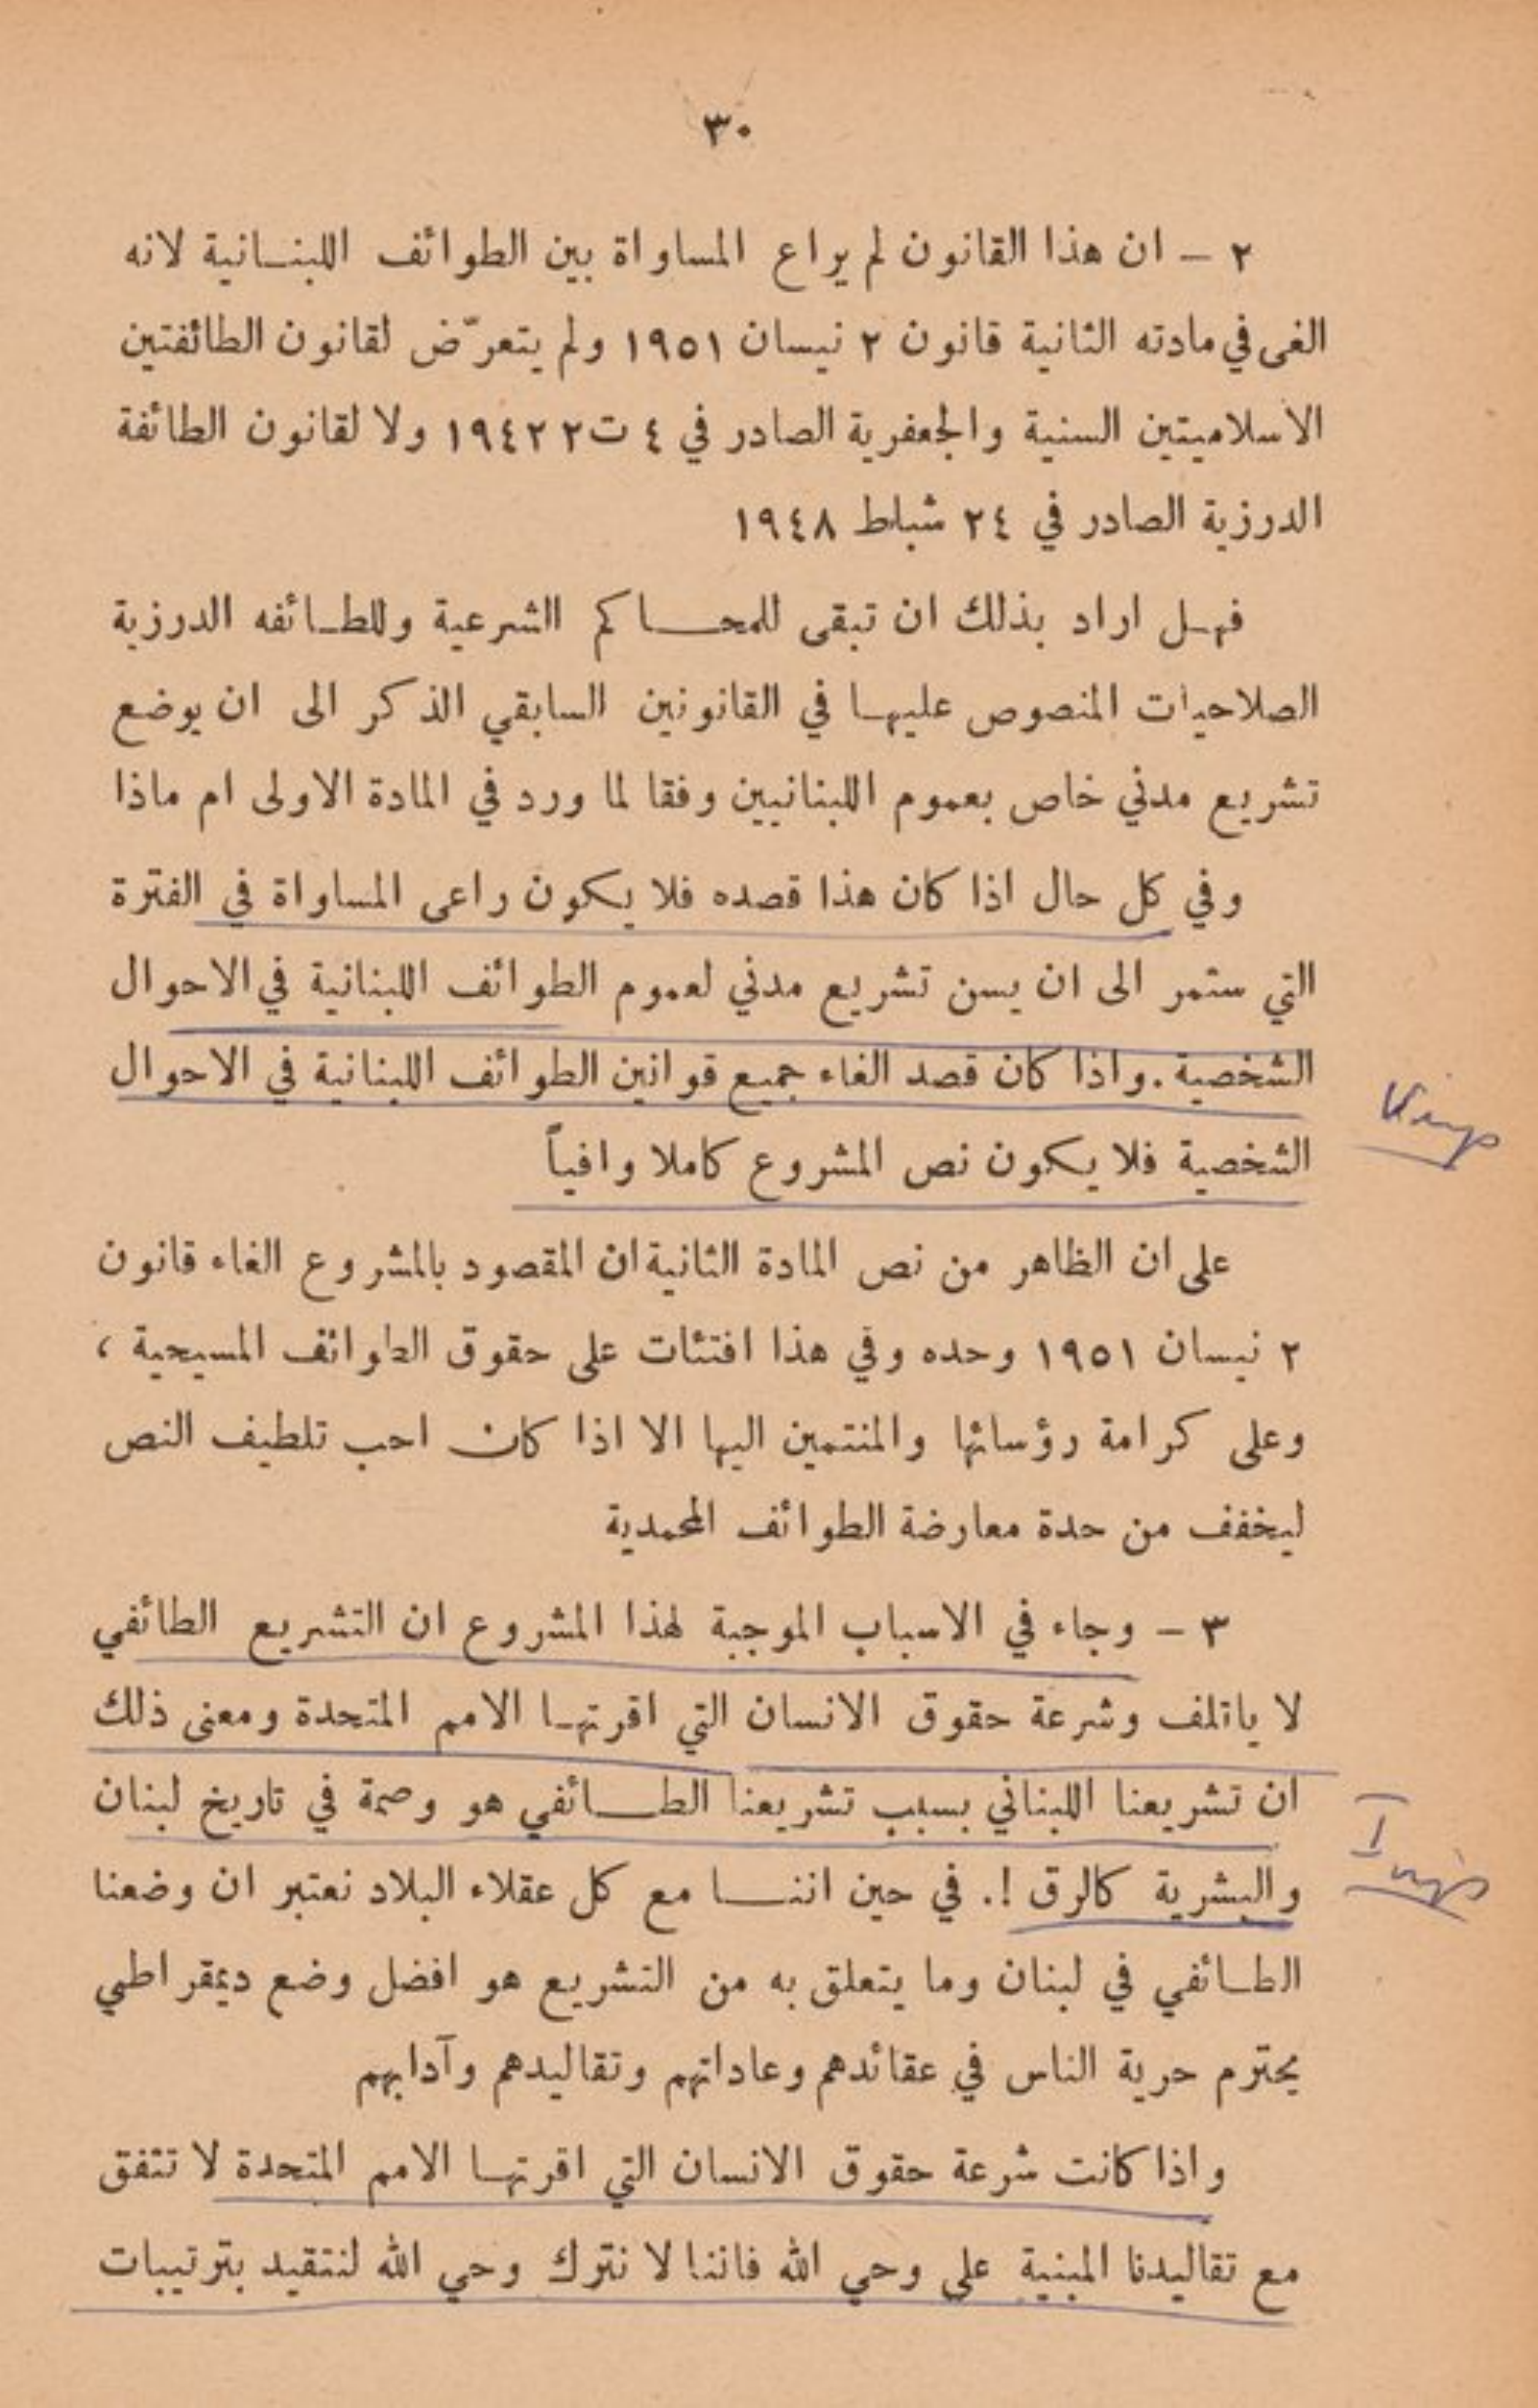 ٣٠
٢ – ان هذا القانون لم يراع المساواة بين الطوائف اللبنـانية لانه
الغى في مادته الثانية قانون ٢ نيسان ١٩٥١ ولم يتعرّض لقانون الطائفتين
الاسلاميتين السنية والجعفرية الصادر في ٤ ت٢ ١٩٤٢ ولا لقانون الطائفة
الدرزية الصادر في ٢٤ شباط ١٩٤٨
فهـل اراد بذلك ان تبقى للمحـــاكم الشرعية وللطـائفه الدرزية
الصلاحيات المنصوص عليهـا في القانونين السابقي الذكر الى ان يوضع
تشريع مدني خاص بعموم اللبنانيين وفقا لما ورد في المادة الاولى ام ماذا
وفي كل حال اذا كان هذا قصده فلا يكون راعى المساواة في الفترة
التي ستمر الى ان يسن تشريع مدني لعموم الطوائف اللبنانية في الاحوال
الشخصية . واذا كان قصد الغاء جميع قوانين الطوائف اللبنانية في الاحوال
الشخصية فلا يكون نص المشروع كاملا وافياً
على ان الظاهر من نص المادة الثانية ان المقصود بالمشروع الغاء قانون
٢ نيسان ١٩٥١ وحده وفي هذا افتئات على حقوق الطوائف المسيحية ،
وعلى كرامة رؤسائها والمنتمين اليها الا اذا كان احب تلطيف النص
ليخفف من حدة معارضة الطوائف المحمدية
٣ – وجاء في الاسباب الموجبة لهذا المشروع ان التشريع الطائفي
لا ياتلف وشرعة حقوق الانسان التي اقرتهـا الامم المتحدة ومعنى ذلك
ان تشريعنا اللبناني بسبب تشريعنا الطـــائفي هو وصمة في تاريخ لبنان
والبشرية كالرق !. في حين اننـــا مع كل عقلاء البلاد نعتبر ان وضعنا
الطـائفي في لبنان وما يتعلق به من التشريع هو افضل وضع ديمقراطي
يحترم حرية الناس في عقائدهم وعاداتهم وتقاليدهم وآدابهم
واذا كانت شرعة حقوق الانسان التي اقرتهـا الامم المتحدة لا تتفق
مع تقاليدنا المبنية على وحي الله فاننا لا نترك وحي الله لنتقيد بترتيبات